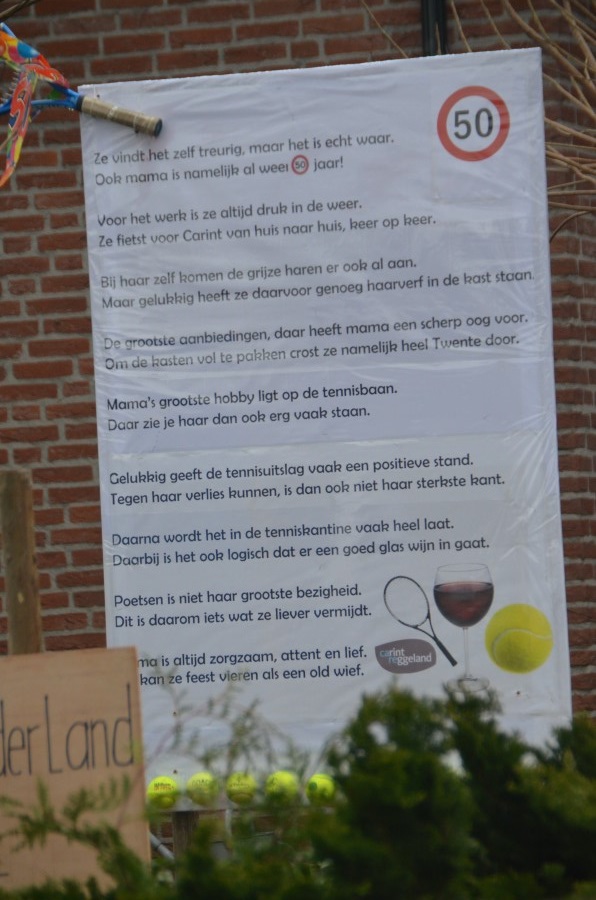 50
Ze vindt het zelf treurig, maar het is echt waar.
Ook mama is namelijk al weer 50 jaar!
Voor het werk is ze altijd druk in de weer.
Ze fietst voor Carint van huis naar huis, keer op keer.
Bij haar zelf komen de grijze haren er ook al aan.
Maar gelukkig heeft ze daarvoor genoeg haarverf in de kast staan.
De grootste aanbiedingen, daar heeft mama een scherp oog voor.
Om de kasten vol te pakken crost ze namelijk heel Twente door.
Mama's grootste hobby ligt op de tennisbaan.
Daar zie je haar dan ook erg vaak staan.
Gelukkig geeft de tennisuitslag vaak een positieve stand.
Tegen haar verlies kunnen, is dan ook niet haar sterkste kant.
Daarna wordt het in de tenniskantine vaak heel laat.
Daarbij is het ook logisch dat er een goed glas wijn in gaat.
Poetsen is niet haar grootste bezigheid.
Dit is daarom iets wat ze liever vermijdt.
ma is altijd zorgzaam, attent en lief.
kan ze feest vieren als een old wief.
carint
reggeland
der Land